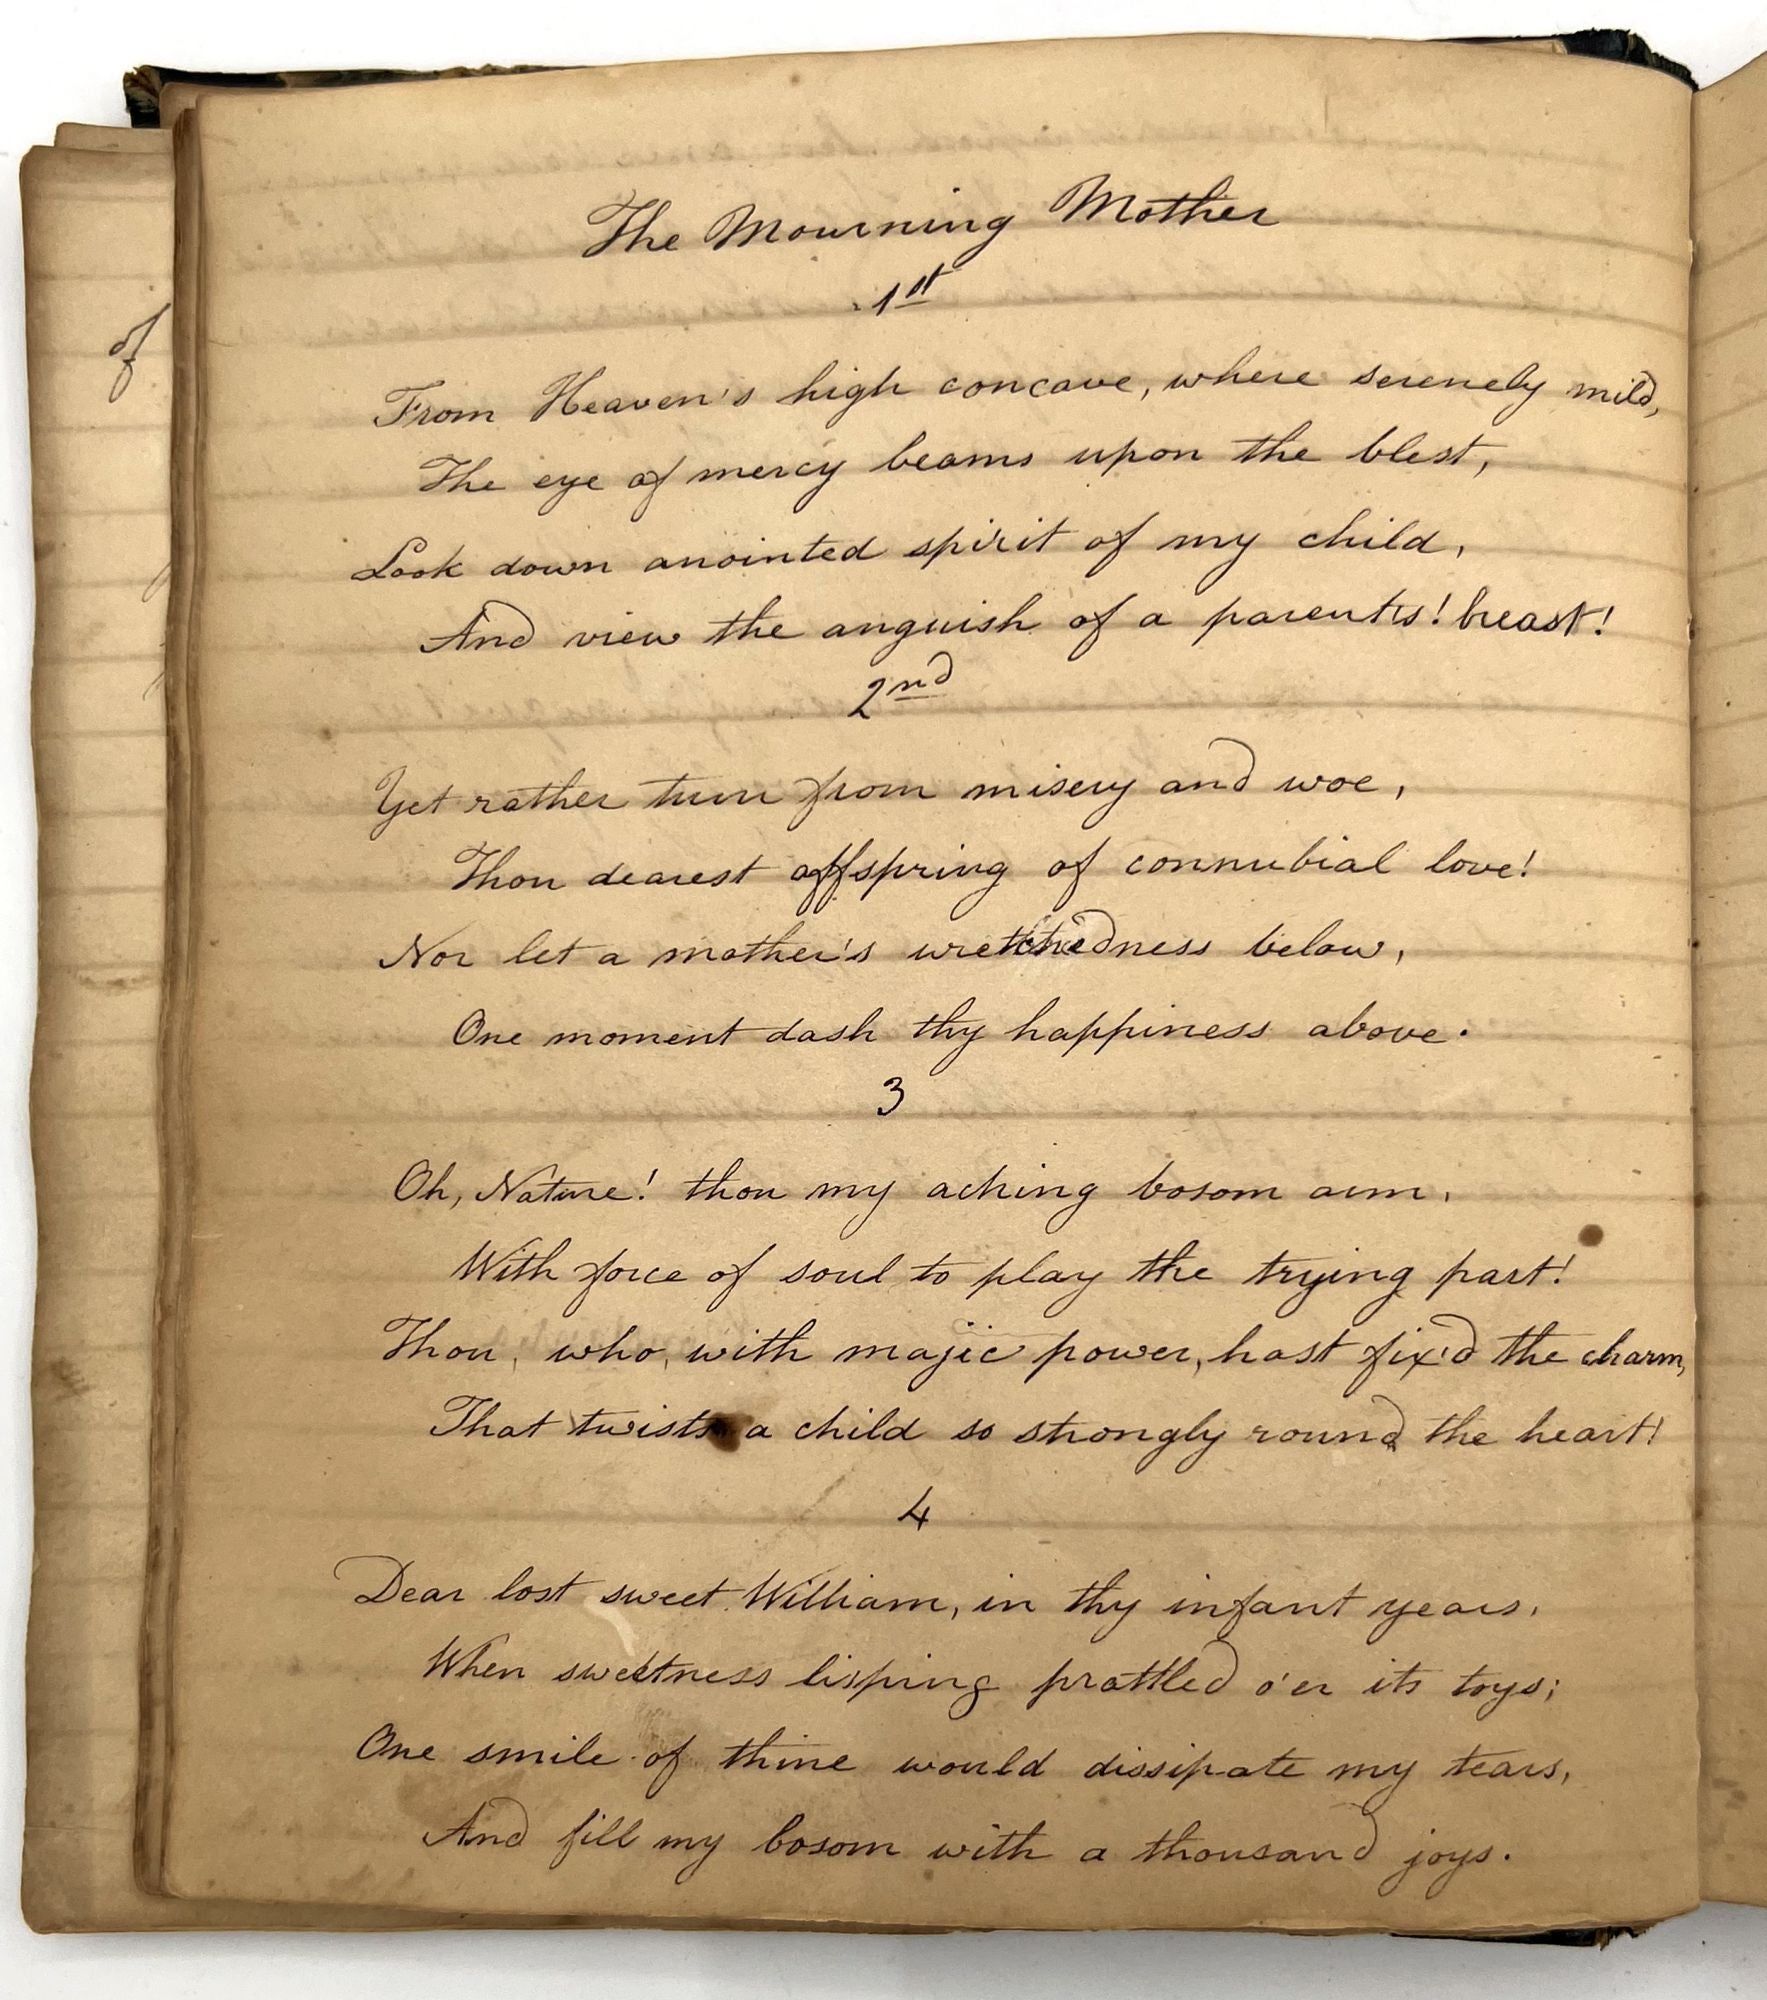 The Mourning Mother
1st
From Heaven's high concave, where serenely mild,
The eye of mercy beams upon the blest,
Look down anointed spirit of my child,
And view the anguish of a parent's! breast!
2nd
Yet rather turn from misery and woe,
Thou dearest offspring of connubial love!
Nor let a mother's wretchedness below,
One moment dash thy happiness above.
3
Oh, Nature! thou my aching bosom arm,
With force of soul to play the trying part!
Thou, who, with majic power, hast fix'd the charm,
That twists a child so strongly round the heart!
4
Dear lost sweet William, in thy infant years,
When sweetness lisping prattled o'er its toys;
One smile of thine would dissipate my tears,
And fill my bosom with a thousand joys.
of